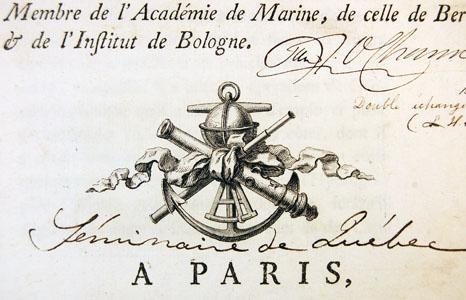 Membre de l'Académie de Marine, de celle de Ber
& de l'Inſtitut de Bologne.
Double échange
Séminaire de Québec
A PARIS,